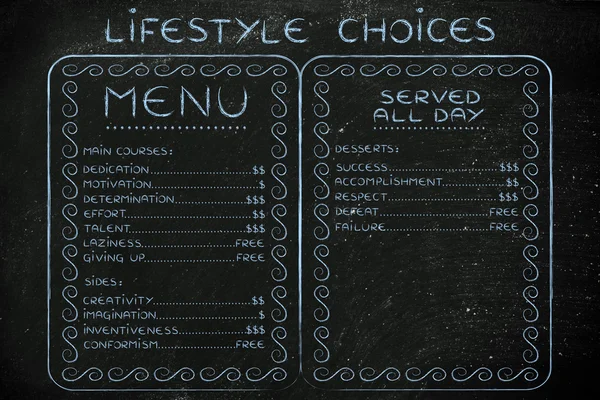 LIFESTYLE CHOICES
MENU
MAIN COURSES:
DEDICATION..................$$
MOTIVATION..................$
DETERMINATION............$$$
EFFORT.........................$$
TALENT........................$$$
LAZINESS....................FREE
GIVING UP...................FREE
SIDES:
CREATIVITY...................$$
IMAGINATION.................$
INVENTIVENESS.............$$$
CONFORMISM................FREE
SERVED
ALL DAY
DESSERTS:
SUCCESS.......................$$$
ACCOMPLISHMENT...........$$
RESPECT.......................$$$
DEFEAT........................FREE
FAILURE.......................FREE